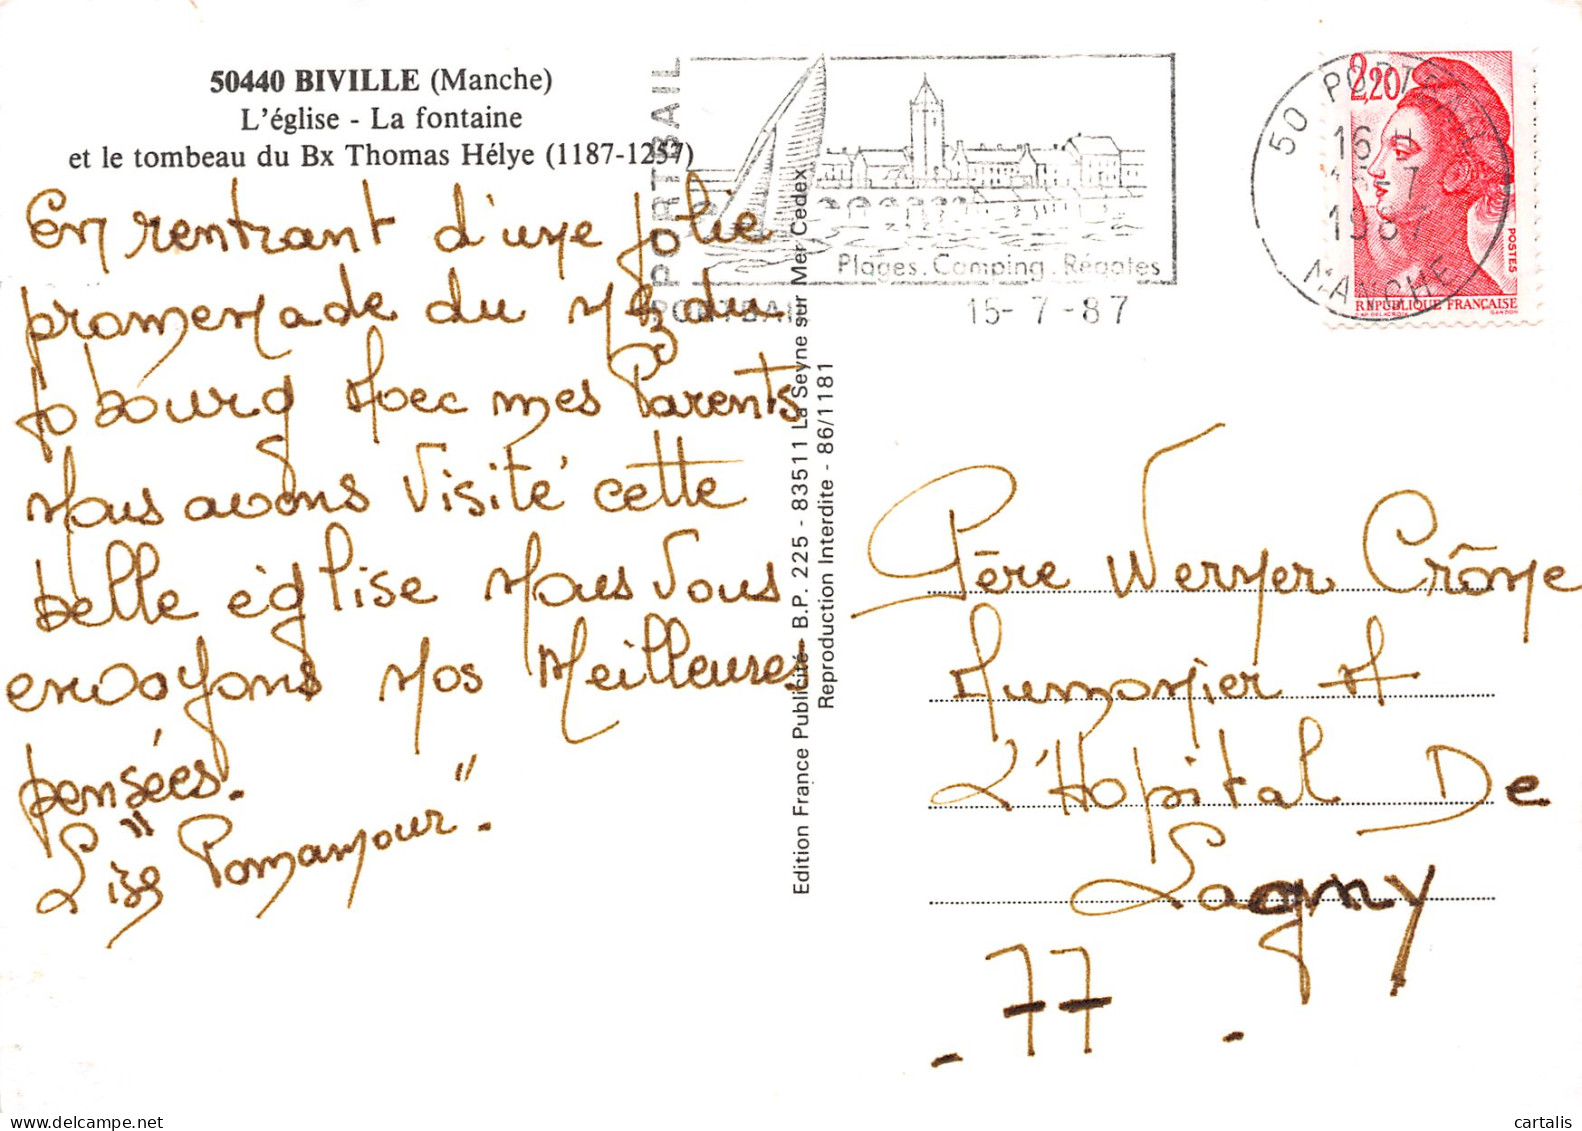 50440 BIVILLE (Manche)
L'église - La fontaine
et le tombeau du Bx Thomas Hélye (1187-1257)
En rentrant d'une jolie
promenade du Nez du
Jobourg Avec mes Parents
Nous avons visité cette
belle église Nous Vous
envoyons Nos Meilleures
pensées.
"Lise Pomamjour".
PORTBAIL
PORTBAIL
Plages. Camping. Régates
15-7-87
50 PORTBAIL
16 H
15-7
1987
MANCHE
2,20
POSTES
RÉPUBLIQUE FRANÇAISE
CAP. DELACROIX
GANDON
Edition France Publicité - B.P. 225 - 83511 La Seyne sur Mer Cedex
Reproduction Interdite - 86/1181
Père Werner Crône
Aumonier A
L'Hopital De
Lagny
- 77 -
cartalis